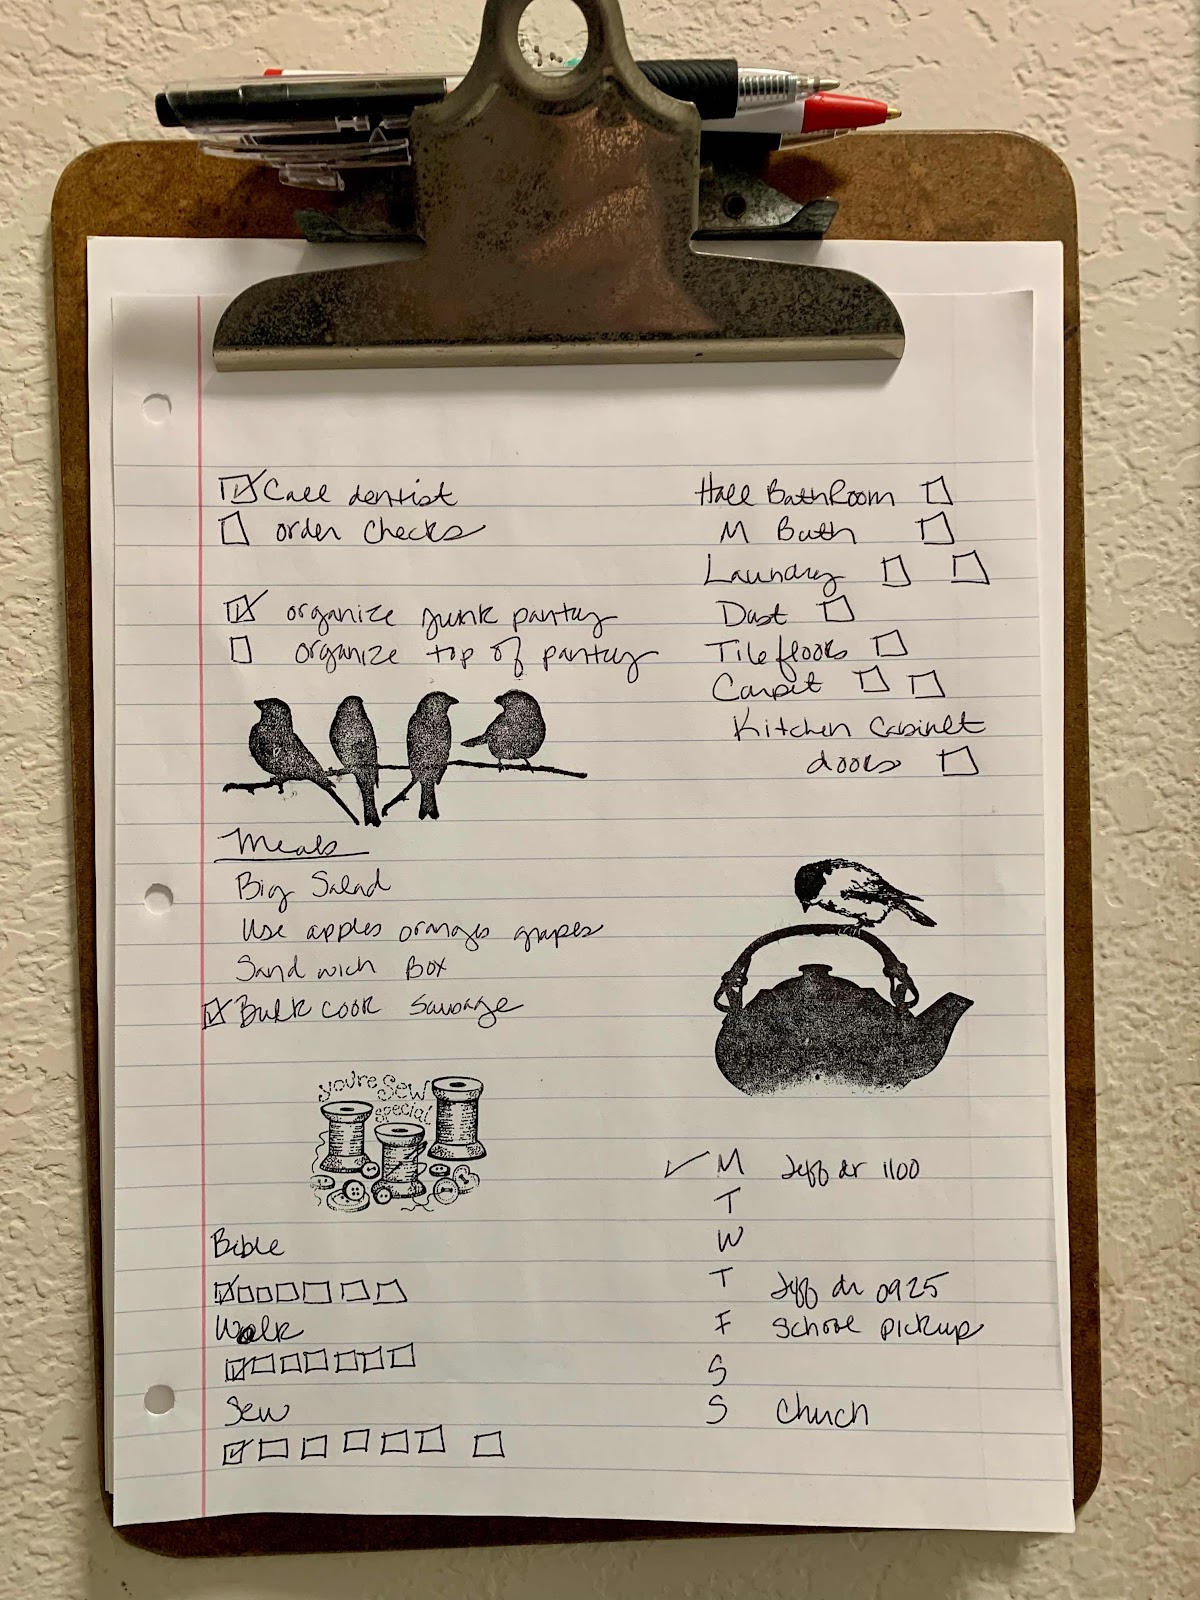 Call dentist
order checks
organize junk pantry
organize top of pantry
Hall BathRoom
M Bath
Laundry
Dust
Tile floors
Carpet
Kitchen Cabinet
doors
Meals
Big Salad
Use apples oranges grapes
Sandwich Box
Bulk cook sausage
you're Sew
special
Bible
Walk
Sew
M Jeff dr 1100
T
W
T Jeff dr 0925
F School pickup
S
S Church